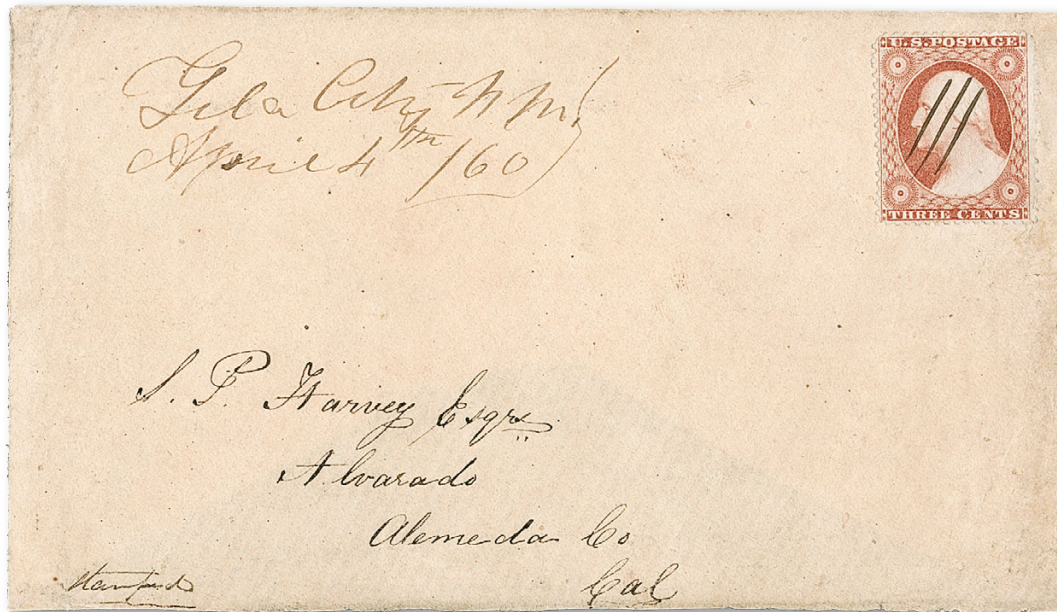 Gila City N M
April 4th /60
U.S. POSTAGE
THREE CENTS
S. P. Harvey Esqr
Alvarado
Alemeda Co
Cal